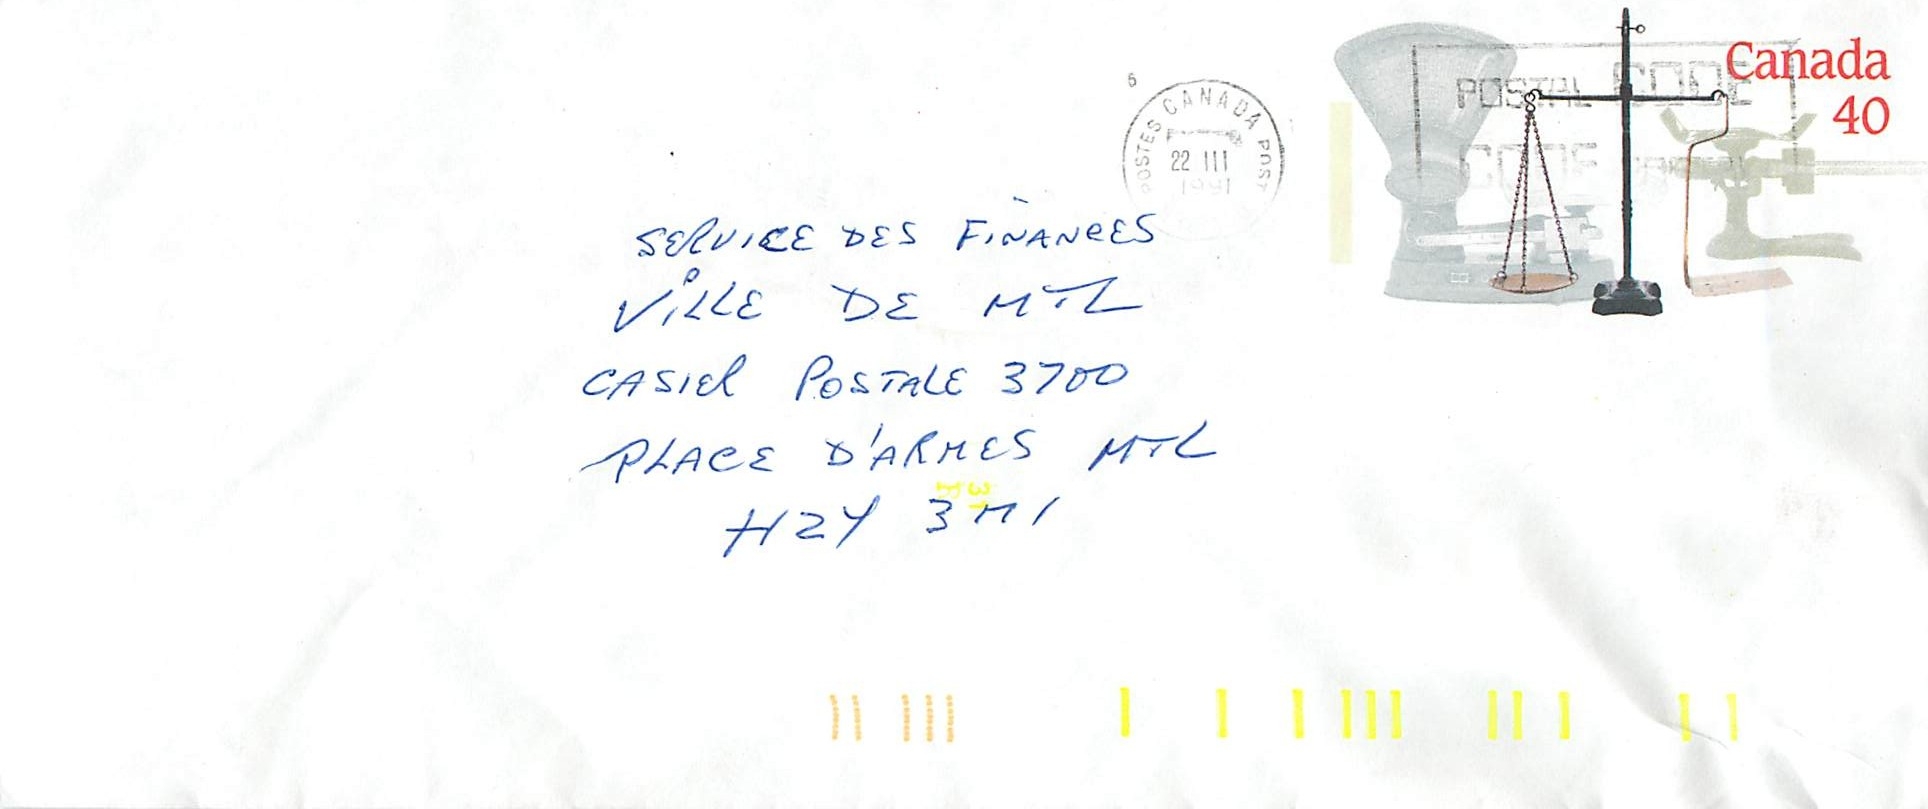 Canada
40
POSTAL CODE
CODE POSTAL
6
POSTES CANADA POST
22 III
1991
SERVICE DES FINANCES
VILLE DE MTL
CASIER POSTALE 3700
PLACE D'ARMES MTL
H2Y 3M1